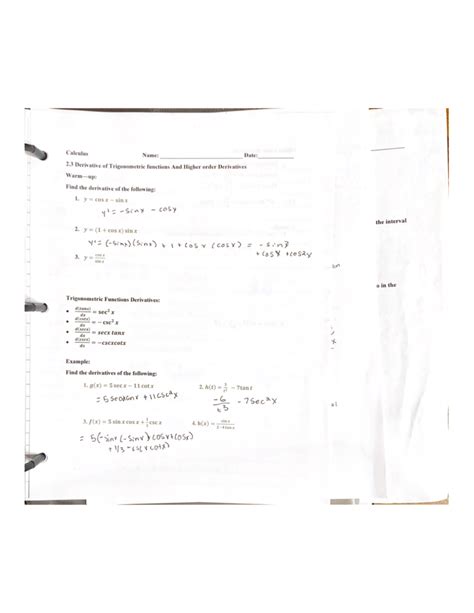 Calculus Name: Date:
2.3 Derivative of Trigonometric functions And Higher order Derivatives
Warm—up:
Find the derivative of the following:
1. y = cos x − sin x
y' = -sinx - cosx
2. y = (1 + cos x) sin x
y' = (-sinx)(sinx) + 1 + cosx (cosx) = -sin²x
+ cosx + cos²x
3. y = cos x / sin x
the interval
o in the
Trigonometric Functions Derivatives:
• d(tanx)/dx = sec² x
• d(cotx)/dx = − csc² x
• d(secx)/dx = secx tanx
• d(cscx)/dx = −cscxcotx
Example:
Find the derivatives of the following:
1. g(x) = 5 sec x − 11 cot x 2. h(t) = − 7tan x
= 5 + 11csc²x -6/t5 - 7sec²x
3. f(x) = 5 sin x cos x + 1/3 csc x 4. h(x) =
= 5(-sinx(-sinx) cosx(cosx)
+ 1/3 -cscxcotx)